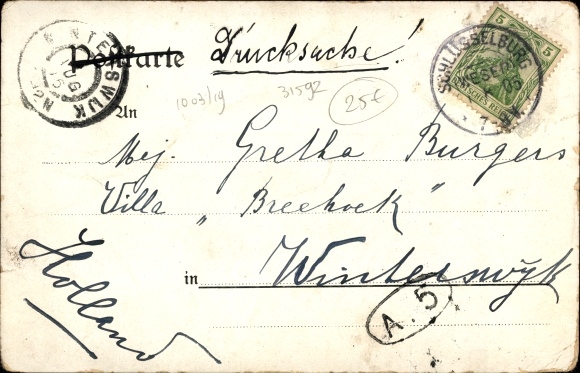 Postkarte Drucksache!
WINTERSWIJK
AUG
5 5
SCHLÜSSELBURG
(WESER)
05
DEUTSCHES REICH
1003/19 31592 25€
An
Mej. Gretha Burgers
Villa „Breehoek"
in Winterswyk
Holland
A.5